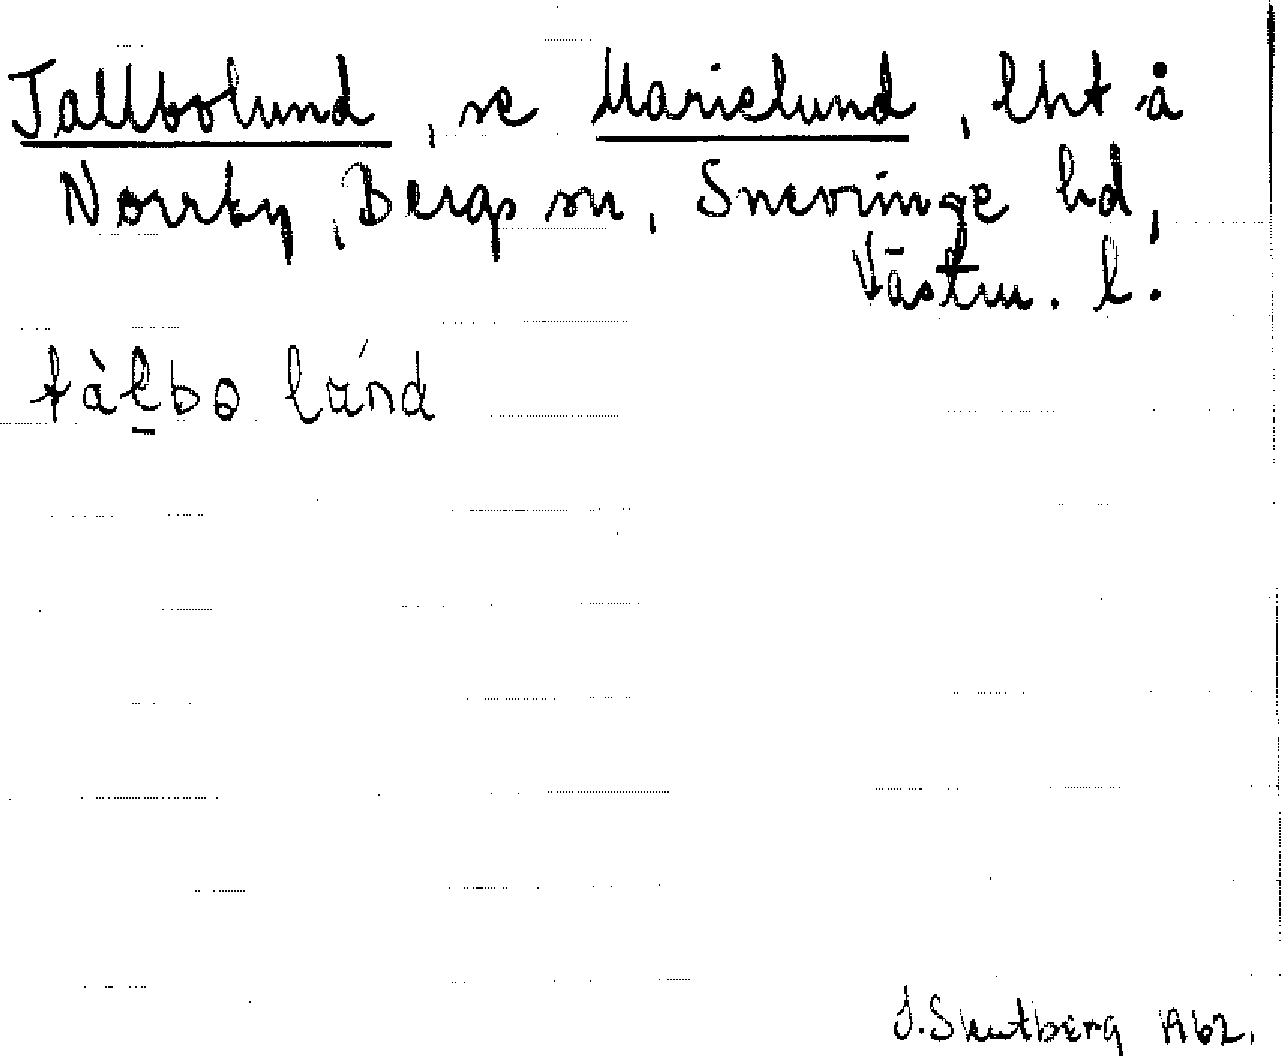 Tallbolund, se Marielund, lht å
Norrby, Bergs sn, Snevringe hd,
Västm. l.
tàl̠bo lánd
J. Skutberg 1962.